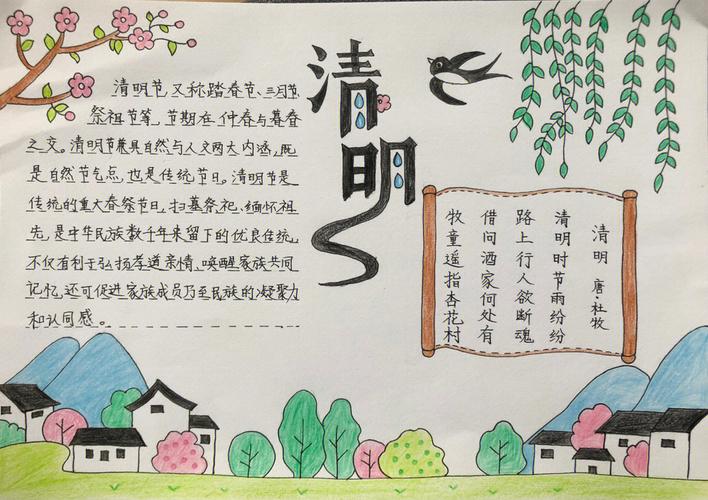 清明
清明节，又称踏春节、三月节、
祭祖节等，节期在仲春与暮春
之交。清明节兼具自然与人文两大内涵，既
是自然节气点，也是传统节日。清明节是
传统的重大春祭节日，扫墓祭祀、缅怀祖
先，是中华民族数千年来留下的优良传统，
不仅有利于弘扬孝道亲情、唤醒家族共同
记忆，还可促进家族成员乃至民族的凝聚力
和认同感。
清明 唐·杜牧
清明时节雨纷纷
路上行人欲断魂
借问酒家何处有
牧童遥指杏花村